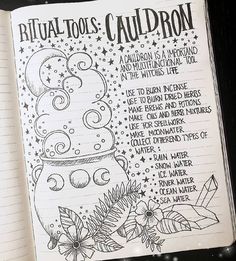 RITUAL TOOLS: CAULDRON
A CAULDRON IS A IMPORTAND
AND MULTIFUNCTIONAL TOOL
IN THE WITCHES LIFE
USE TO BURN INCENSE
USE TO BURN DRIED HERBS
MAKE BREWS AND POTIONS
MAKE OILS AND HERB MIXTURES
USE FOR SPELLWORK
MAKE MOONWATER
COLLECT DIFFEREND TYPES OF
WATER:
RAIN WATER
SNOW WATER
ICE WATER
RIVER WATER
OCEAN WATER
SEA WATER